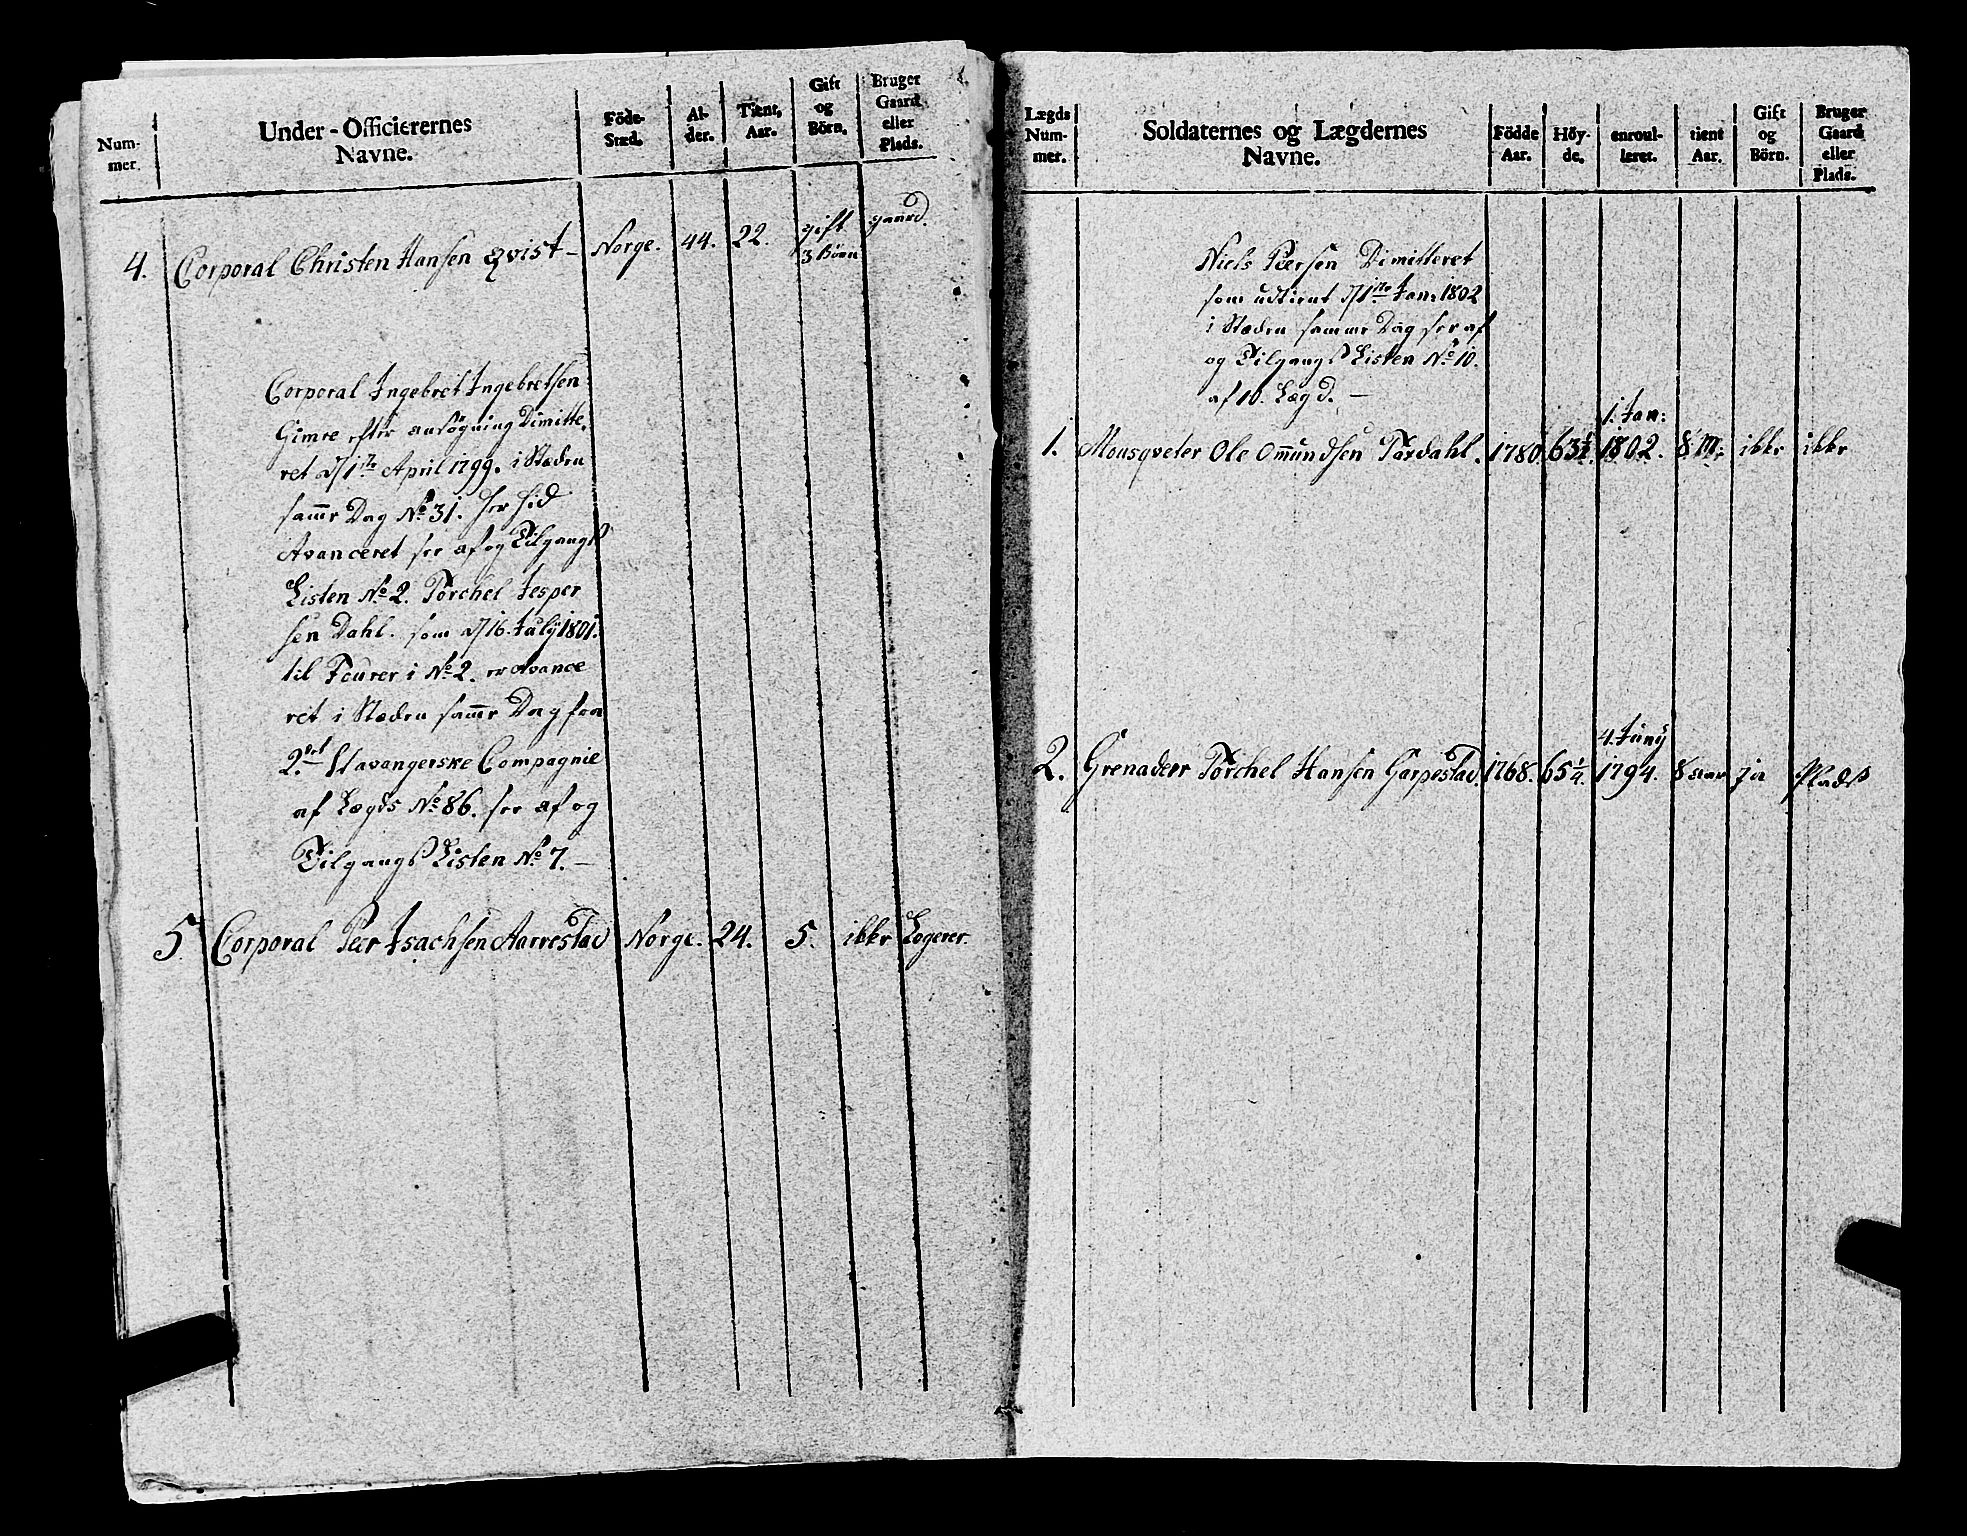 Num-
mer.
Under-Officierernes
Navne.
Föde-
Stæd.
Al-
der.
Tient,
Aar.
Gift
og
Börn.
Bruger
Gaard
eller
Plads.
4. Corporal Christen Hansen Qvist - Norge. 44. 22. gift gaard.
3 Börn
Corporal Ingebret Ingebretsen
Gimre efter ansögning Dimitte,
ret d/1te April 1799. i Stæden
samme Dag No 31. her hid
Avanceret see af og Tilgangs
Listen No 2. Torchel Jesper
sen Dahl. som d/16. July 1801.
til Fourer i No 2. er Avance
ret i Stæden samme Dag fra
2det Stavangerske Compagnie
af Lægds No 86. see af og
Tilgangs Listen No 7. -
5. Corporal Peer Isachsen Aarrestad Norge. 24. 5. ikke Logerer.
Lægds
Num-
mer.
Soldaternes og Lægdernes
Navne.
Födde
Aar.
Höy-
de.
enroul-
leret.
tient
Aar.
Gift
og
Börn.
Bruger
Gaard
eller
Plads.
Niels Peersen Dimitteret
som udtient d/1te Jan: 1802
i Stæden samme Dag see af
og Tilgangs Listen No 10.
af 10. Lægd. -
1. Jan:
1. Mousqveter Ole Omundsen Tordahl. 1780. 63½ 1802. 8 M: ikke ikke
4. Juny
2. Grenadeer Torchel Hansen Garpestad. 1768. 65¼ 1794. 8 aar ja Plads